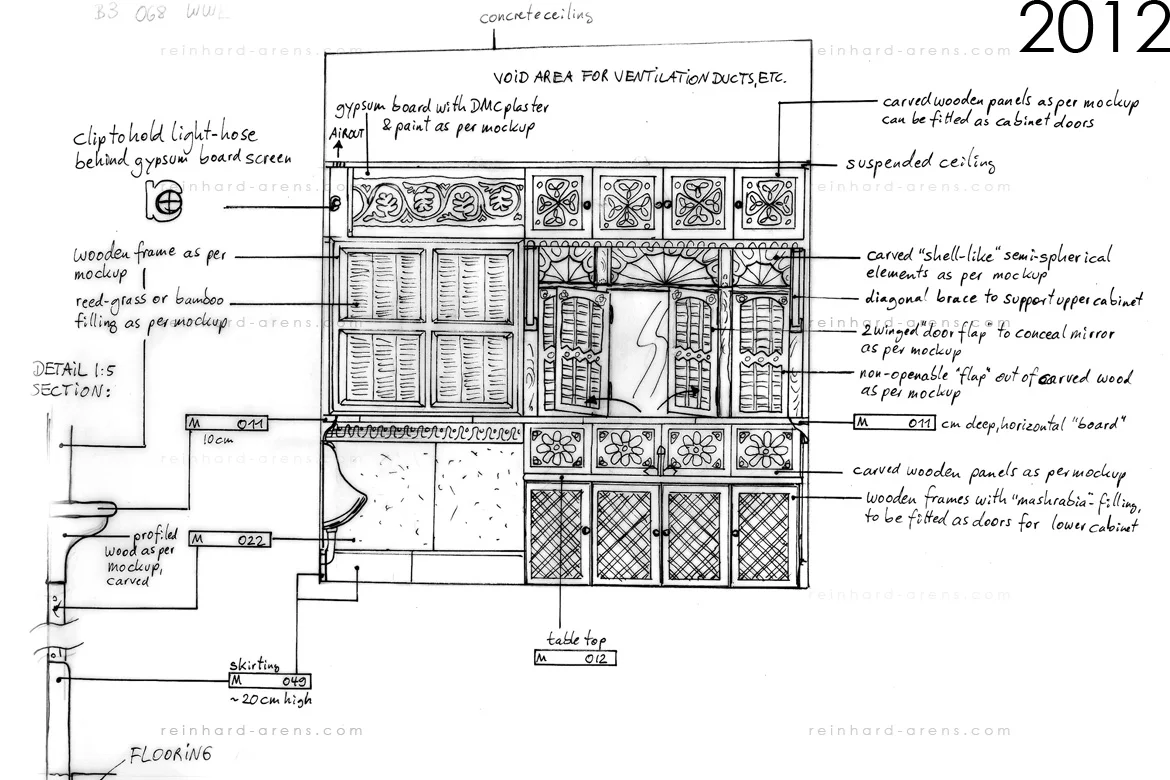 B3 068 WWL
2012
concrete ceiling
reinhard-arens.com
reinhard-arens.com
VOID AREA FOR VENTILATION DUCTS, ETC.
gypsum board with DMC plaster
& paint as per mockup
AIR OUT
carved wooden panels as per mockup
can be fitted as cabinet doors
clip to hold light-hose
behind gypsum board screen
suspended ceiling
reinhard-arens.com
reinhard-arens.com
wooden frame as per
mockup
carved "shell-like" semi-spherical
elements as per mockup
reed-grass or bamboo
filling as per mockup
diagonal brace to support upper cabinet
reinhard-arens.com
reinhard-arens.com
2 winged "door flap" to conceal mirror
as per mockup
DETAIL 1:5
SECTION:
non-openable "flap" out of carved wood
as per mockup
M 011
10cm
M 011 cm deep, horizontal "board"
reinhard-arens.com
reinhard-arens.com
carved wooden panels as per mockup
wooden frames with "mashrabia"-filling,
to be fitted as doors for lower cabinet
profiled
wood as per
mockup,
carved
M 022
reinhard-arens.com
table top
M 012
skirting
M 049
~ 20 cm high
reinhard-arens.com
reinhard-arens.com
FLOORING